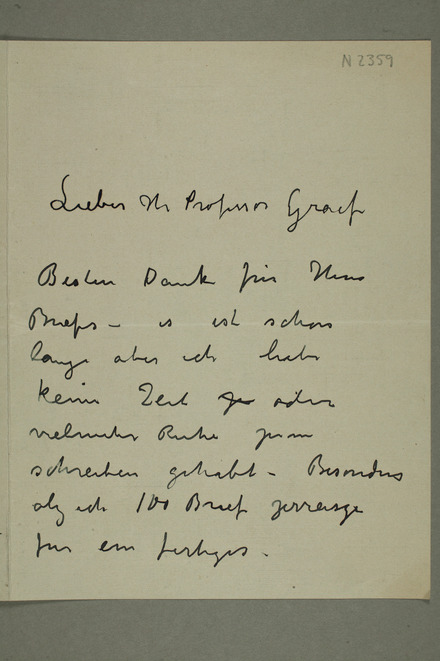 N 2359
Lieber Hr Professor Graef
Besten Dank für Ihren
Briefs – es ist schon
lange aber ich habe
keine Zeit zu oder
vielmehr Ruhe zum
schreiben gehabt – Besonders
als ich 100 Brief zerreisse
für ein fertiges.